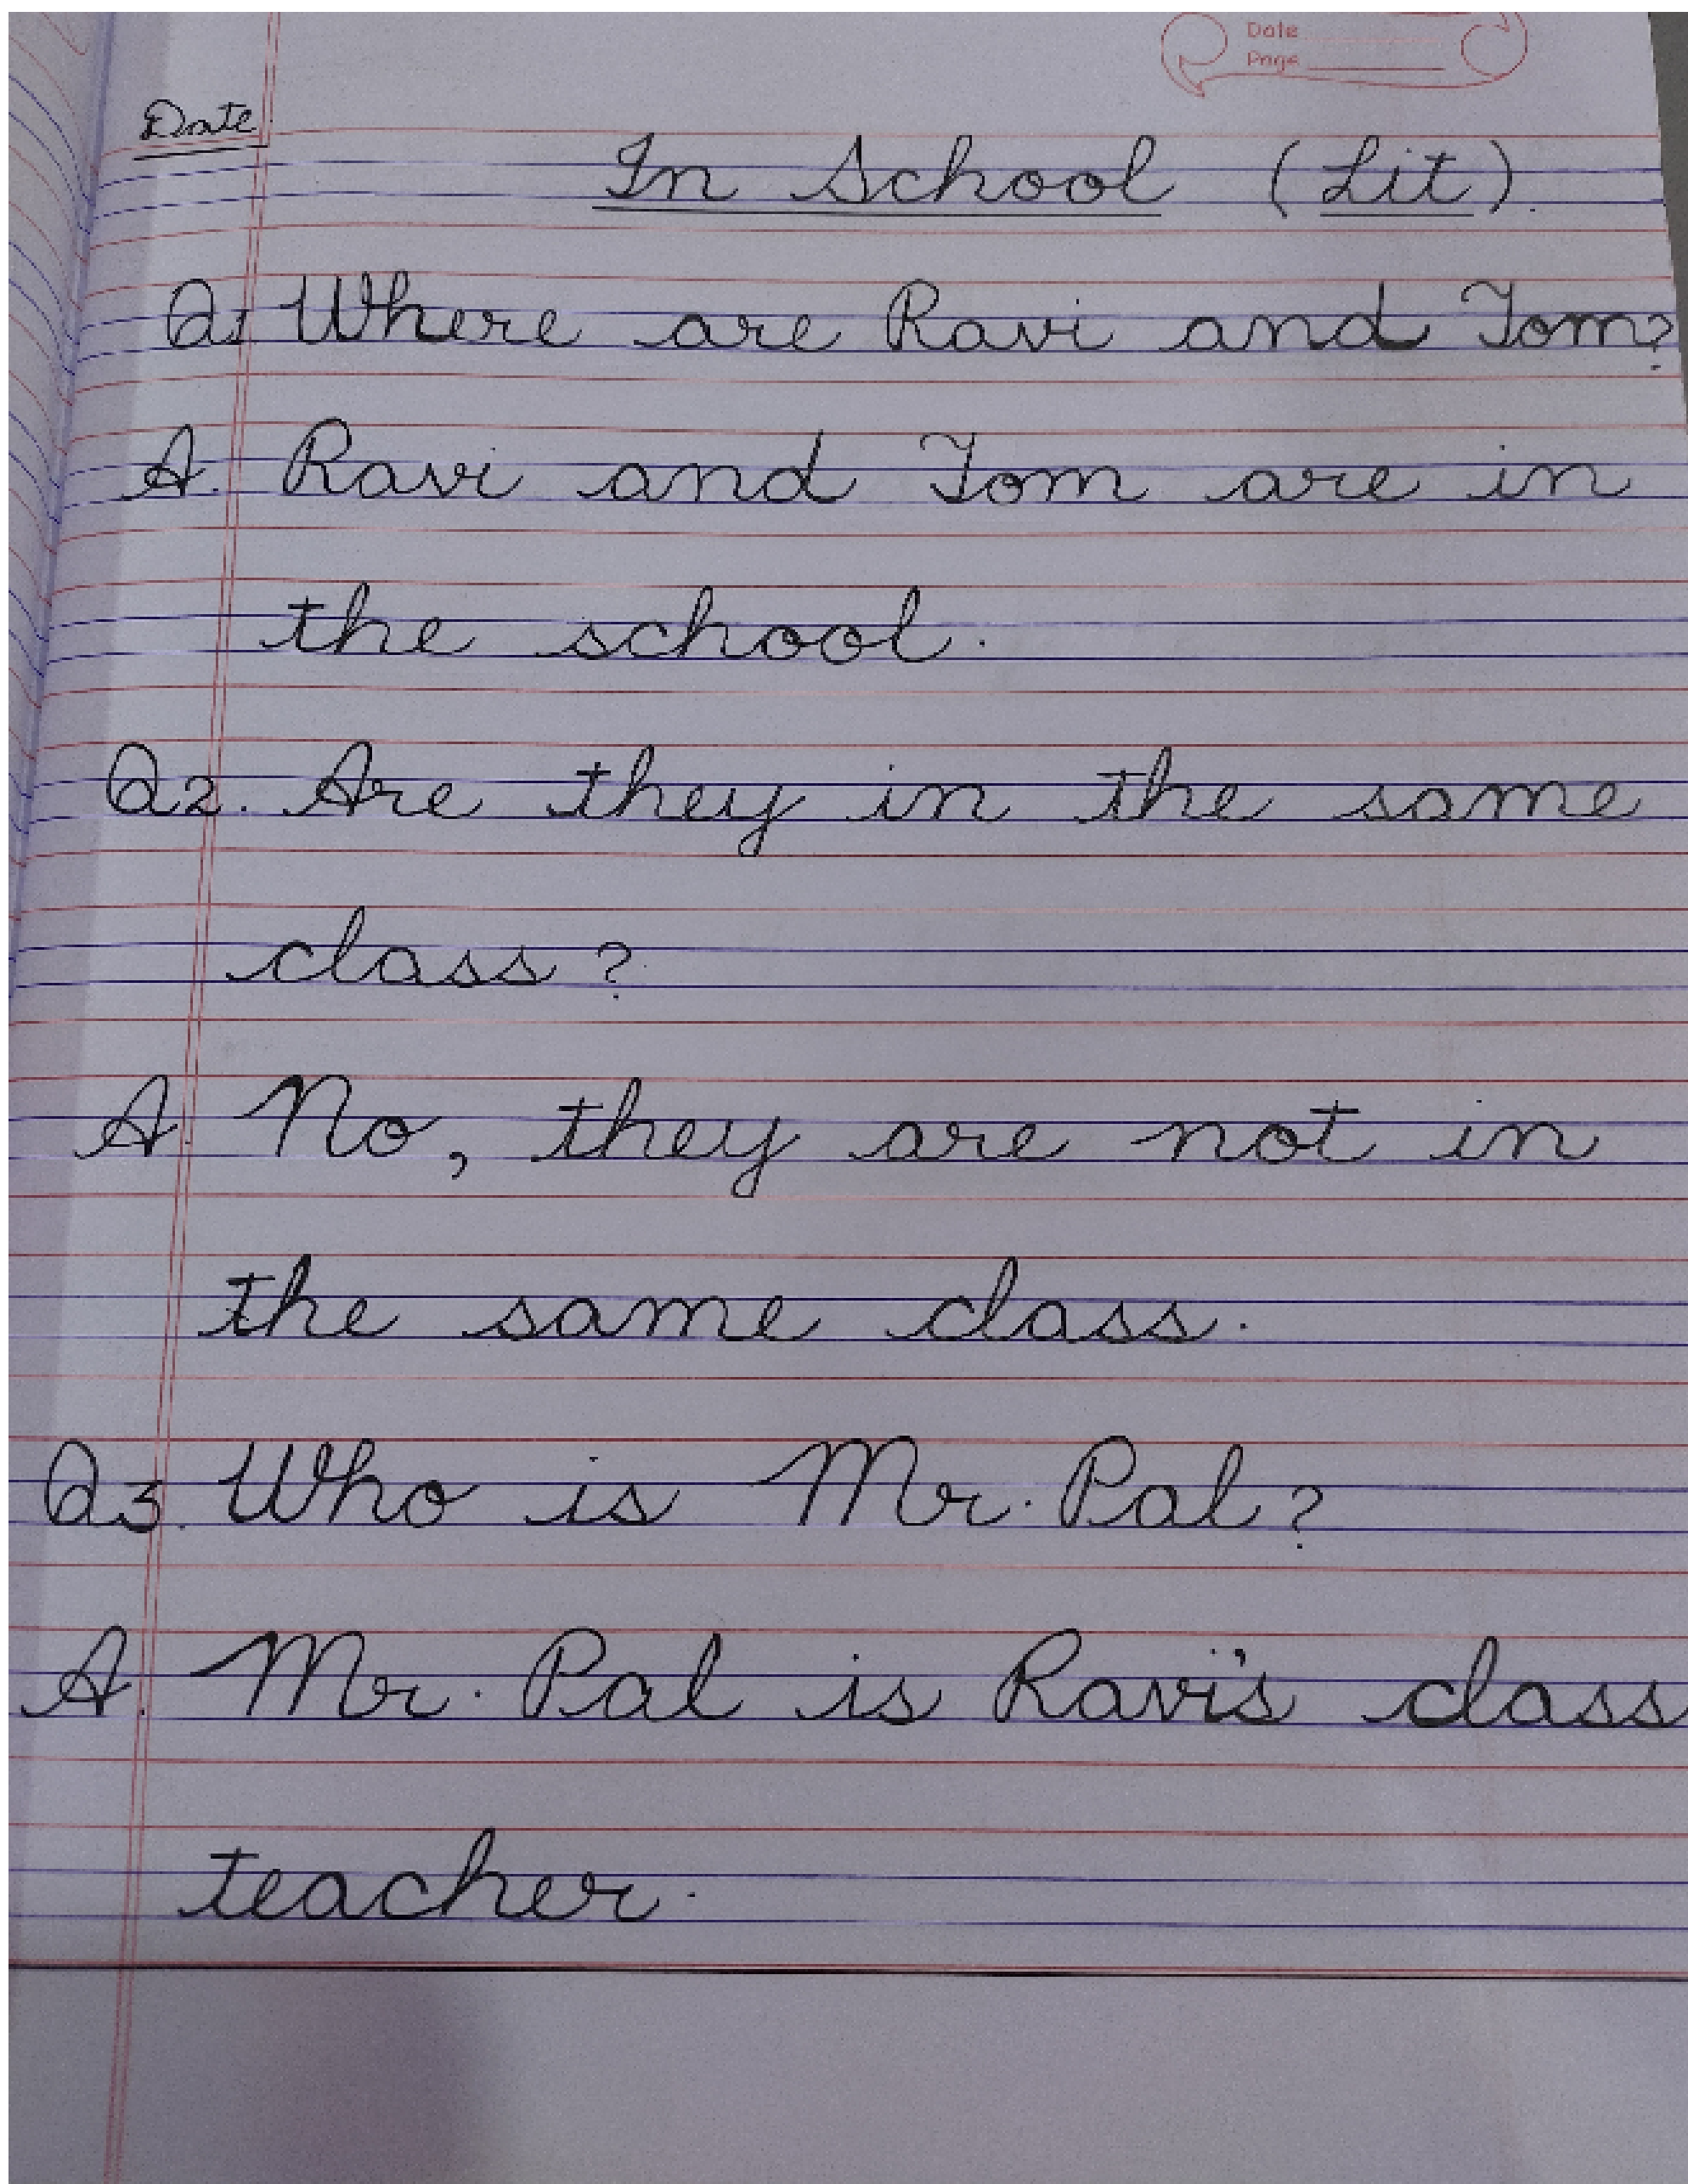 Date
Page
Date
In School (Lit).
Q1 Where are Ravi and Tom?
A. Ravi and Tom are in
the school.
Q2. Are they in the same
class?
A. No, they are not in
the same class.
Q3. Who is Mr. Pal?
A. Mr. Pal is Ravi's class
teacher.